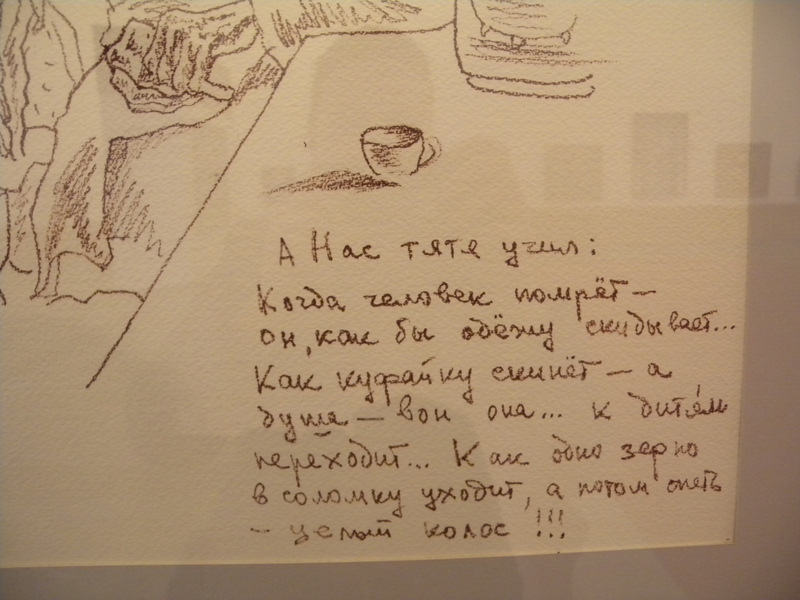 А Нас тятя учил:
Когда человек помрёт —
он, как бы одёжу скидывает...
Как куфайку скинёт — а
душа — вон она... к дитя́м
перехо́дит... Как одно зерно
в соломку уходит, а потом опеть
— целый колос !!!